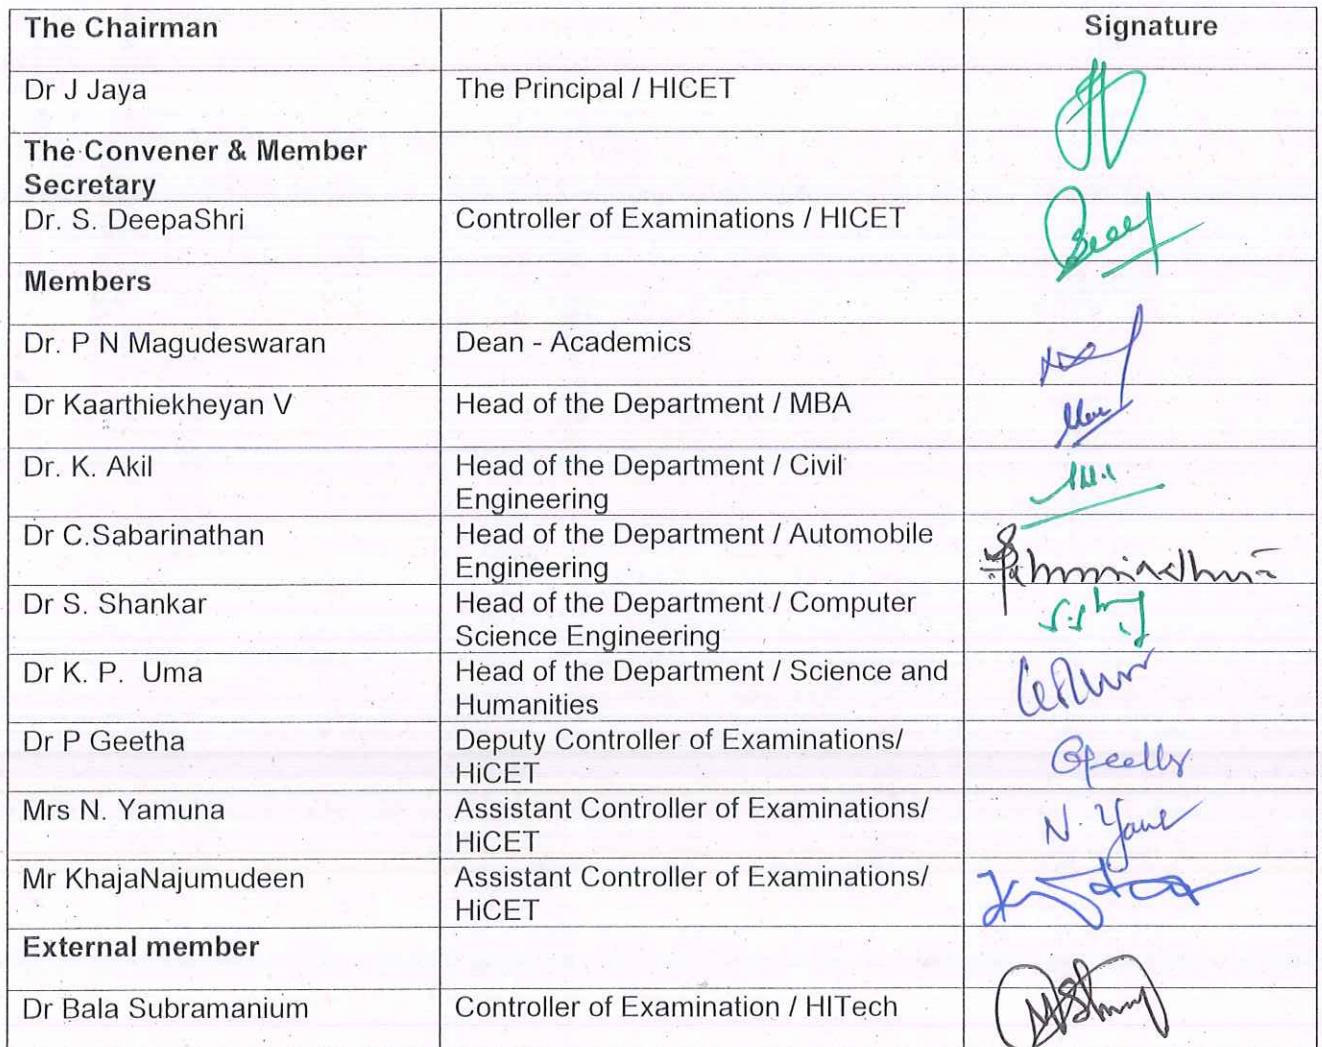 The Chairman Signature
Dr J Jaya The Principal / HICET
The Convener & Member
Secretary
Dr. S. DeepaShri Controller of Examinations / HICET
Members
Dr. P N Magudeswaran Dean - Academics
Dr Kaarthiekheyan V Head of the Department / MBA
Dr. K. Akil Head of the Department / Civil
Engineering
Dr C.Sabarinathan Head of the Department / Automobile
Engineering
Dr S. Shankar Head of the Department / Computer
Science Engineering
Dr K. P. Uma Head of the Department / Science and
Humanities
Dr P Geetha Deputy Controller of Examinations/
HiCET
Mrs N. Yamuna Assistant Controller of Examinations/
HiCET
Mr KhajaNajumudeen Assistant Controller of Examinations/
HiCET
External member
Dr Bala Subramanium Controller of Examination / HITech